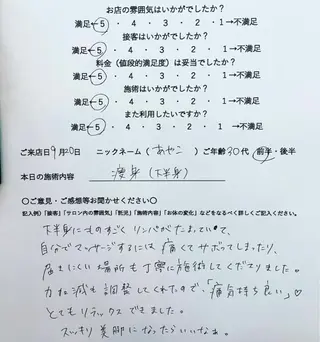 お店の雰囲気はいかがでしたか?
満足←5 ・ 4 ・ 3 ・ 2 ・ 1→不満足
接客はいかがでしたか?
満足←5 ・ 4 ・ 3 ・ 2 ・ 1→不満足
料金(値段的満足度)は妥当でしたか?
満足←5 ・ 4 ・ 3 ・ 2 ・ 1→不満足
施術はいかがでしたか?
満足←5 ・ 4 ・ 3 ・ 2 ・ 1→不満足
また利用したいですか?
満足←5 ・ 4 ・ 3 ・ 2 ・ 1→不満足
ご来店日9月20日 ニックネーム(あやこ)ご年齢30代 前半・後半
本日の施術内容 痩身(下半身)
〇ご意見・ご感想等お聞かせください〇
記入例)「接客」「サロン内の雰囲気」「託児」「施術内容」「お体の変化」などをなるべく詳しくご記入ください。
下半身にものすごくリンパがたまっていて、
自分でマッサージするには痛くてサボってしまったり、
届きにくい場所も丁寧に施術してくださりました。
力加減も調整してくれたので、「痛気持ち良い」♡
とてもリラックスできました。
スッキリ美脚になったらいいなぁ。